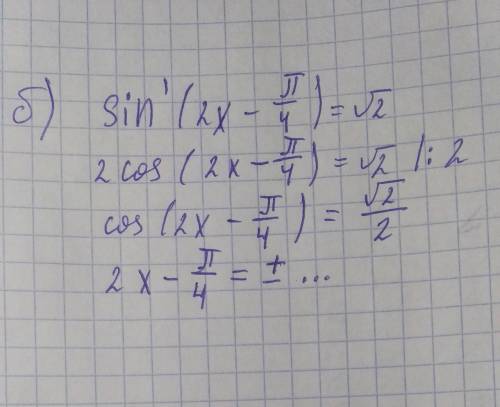 б) sin' (2x - π/4) = √2
2 cos (2x - π/4) = √2 |: 2
cos (2x - π/4) = √2/2
2x - π/4 = ± ...